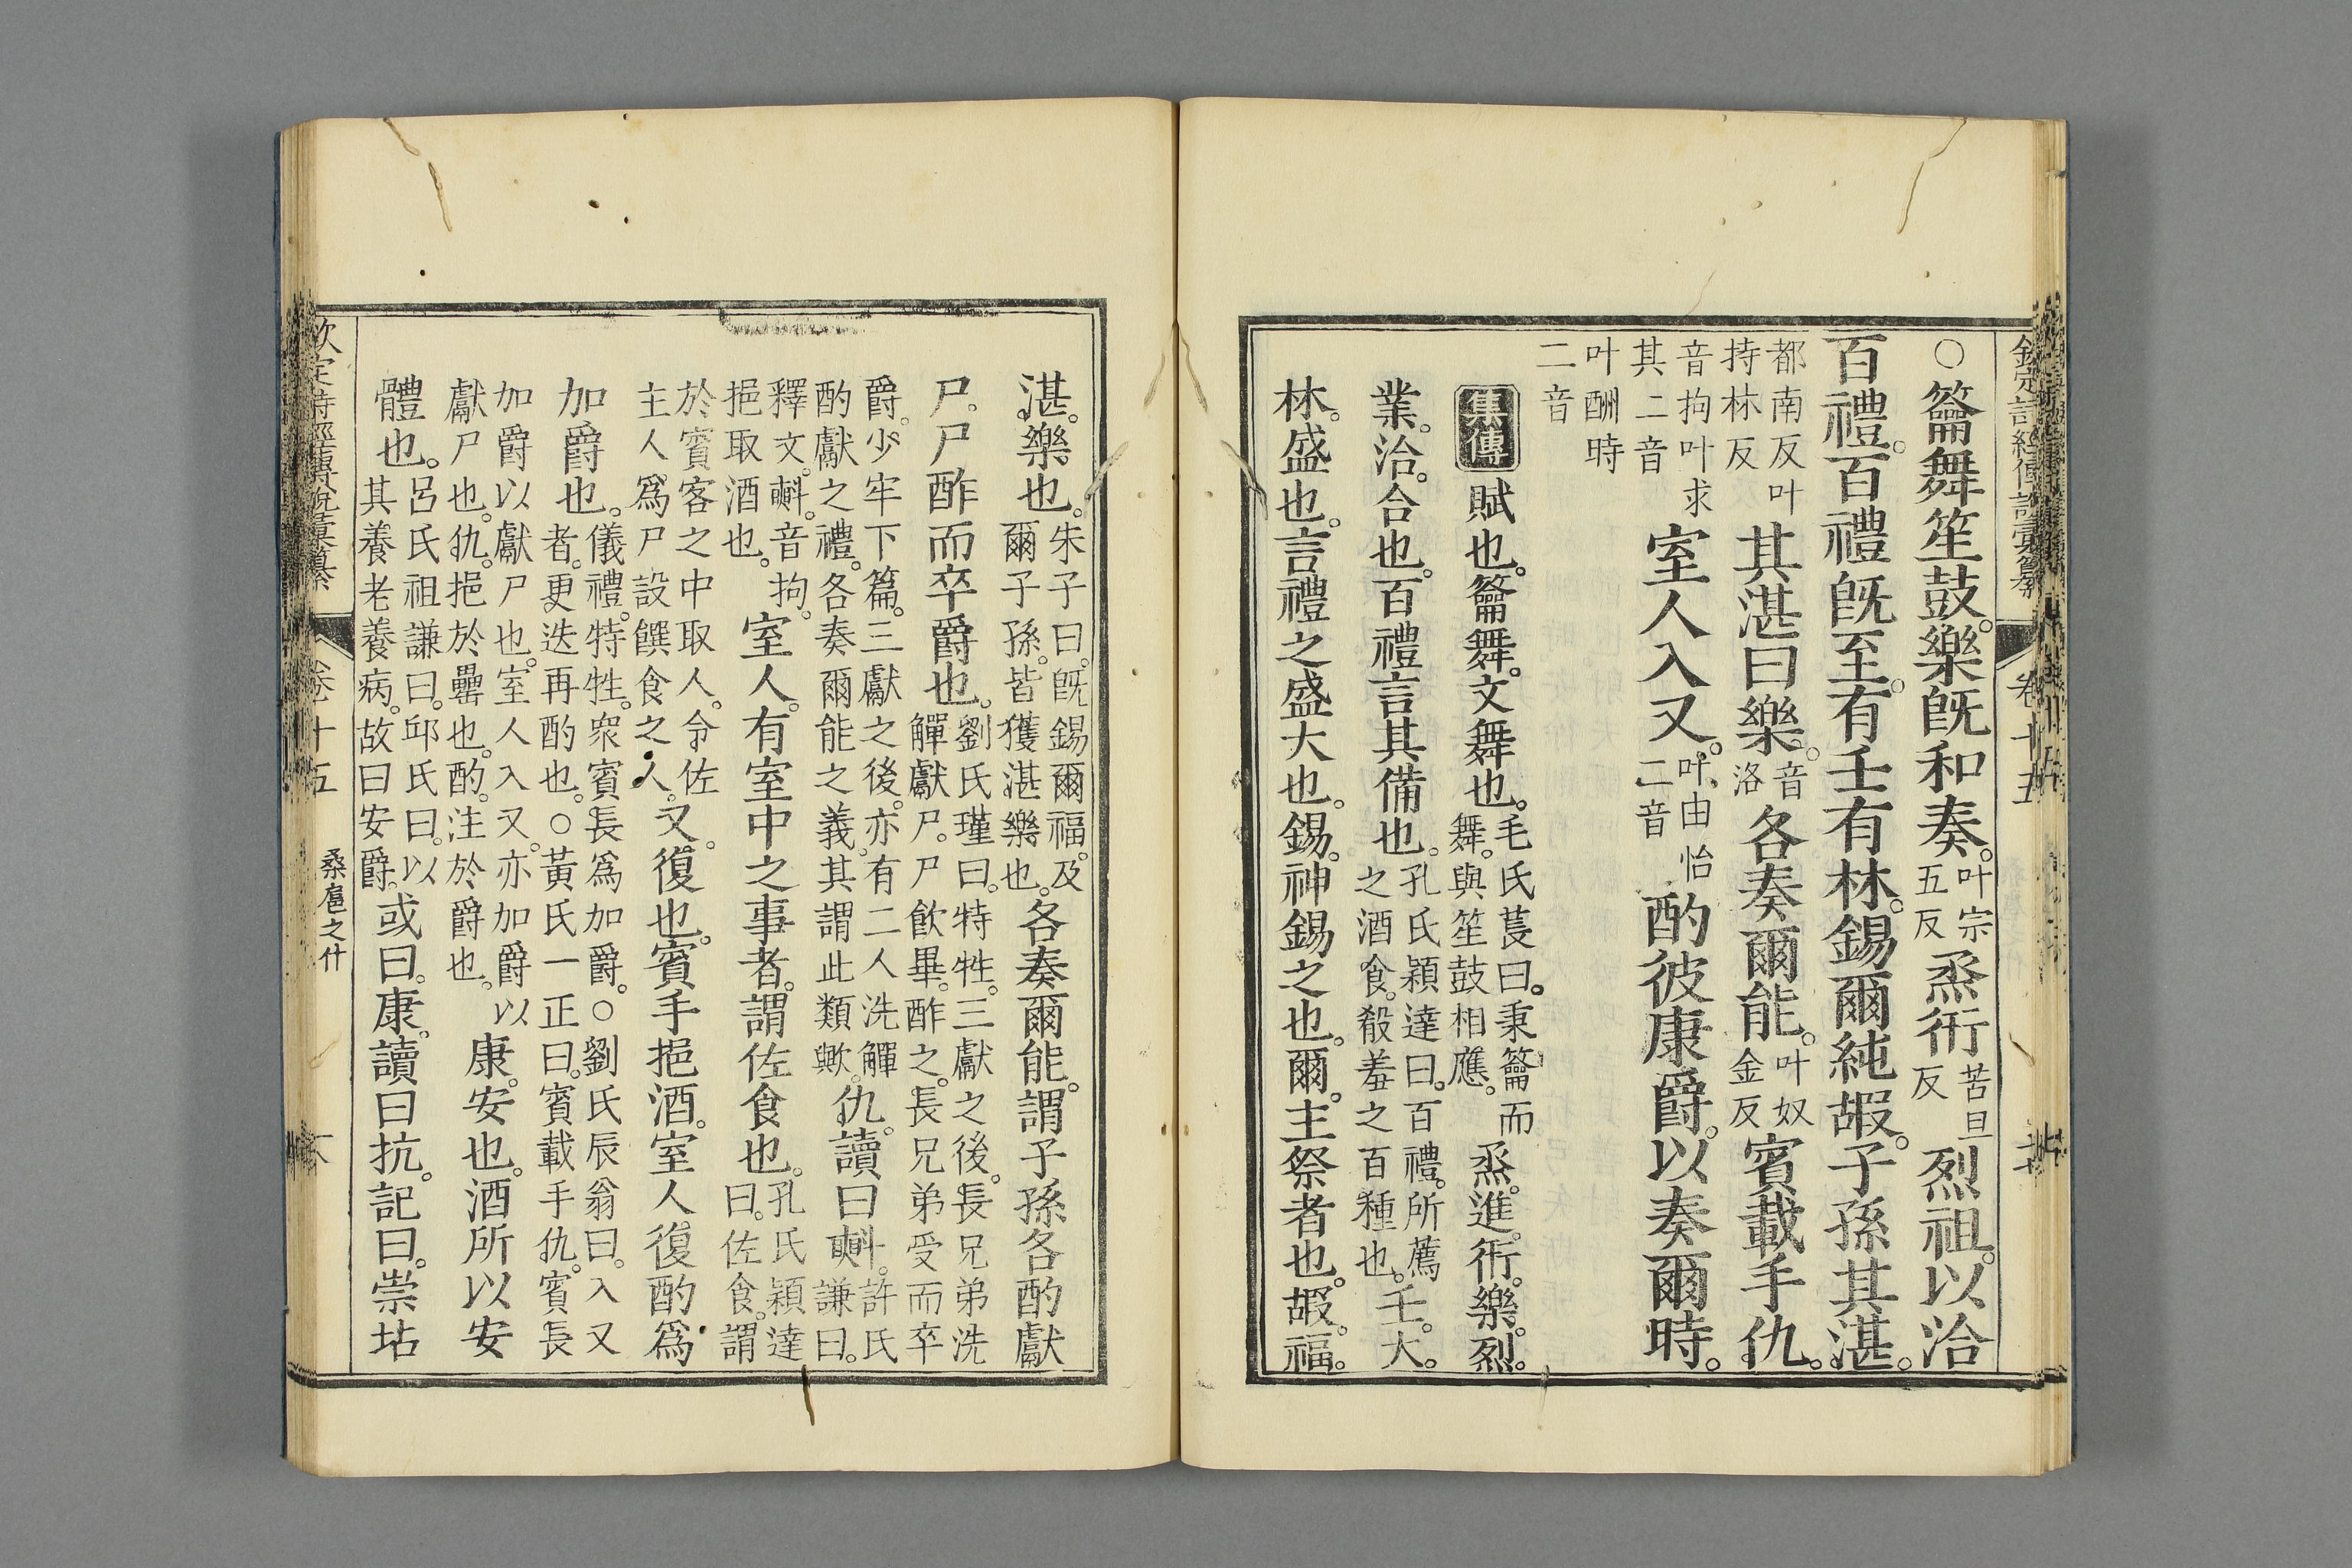 欽定詩經傳說彙纂 卷十五
○籥舞笙鼓。樂旣和奏。叶宗五反烝衎苦旦反烈祖。以洽
百禮。百禮旣至。有壬有林。錫爾純嘏。子孫其湛。
都南反叶持林反其湛曰樂。音洛各奏爾能。叶奴金反賓載手仇。
音拘叶求其二音室人入又。叶由怡二音酌彼康爵。以奏爾時。
叶酬時二音
集傳 賦也。籥舞。文舞也。毛氏萇曰。秉籥而舞。與笙鼓相應。烝。進。衎。樂。烈。
業。洽。合也。百禮言其備也。孔氏穎達曰。百禮。所薦之酒食。殽羞之百種也。壬。大。
林。盛也。言禮之盛大也。錫。神錫之也。爾。主祭者也。嘏。福。
湛。樂也。朱子曰。旣錫爾福。及爾子孫。皆獲湛樂也。各奏爾能。謂子孫各酌獻
尸。尸酢而卒爵也。劉氏瑾曰。特牲。三獻之後。長兄弟洗觶獻尸。尸飲畢。酢之。長兄弟受而卒
爵。少牢下篇。三獻之後。亦有二人洗觶酌獻之禮。各奏爾能之義。其謂此類歟。仇。讀曰㪺。許氏謙曰。
釋文。㪺。音拘。挹取酒也。室人。有室中之事者。謂佐食也。孔氏穎達曰。佐食。謂
於賓客之中取人。令佐主人爲尸設饌食之人。又。復也。賓手挹酒。室人復酌爲
加爵也。儀禮。特牲。衆賓長爲加爵。○劉氏辰翁曰。入又者。更迭再酌也。○黃氏一正曰。賓載手仇。賓長
加爵以獻尸也。室人入又。亦加爵以獻尸也。仇。挹於罍也。酌。注於爵也。康。安也。酒所以安
體也。呂氏祖謙曰。邱氏曰。以其養老養病。故曰安爵。或曰。康。讀曰抗。記曰。崇坫
欽定詩經傳說彙纂 卷十五 桑扈之什